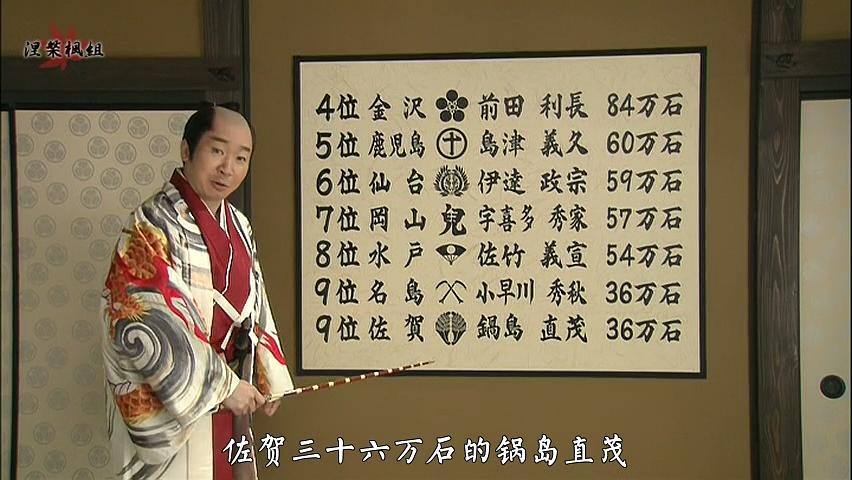 涅槃楓組
4位 金沢 前田 利長 84万石
5位 鹿児島 十 島津 義久 60万石
6位 仙台 伊達 政宗 59万石
7位 岡山 兒 宇喜多 秀家 57万石
8位 水戸 佐竹 義宣 54万石
9位 名島 小早川 秀秋 36万石
9位 佐賀 鍋島 直茂 36万石
佐贺三十六万石的锅岛直茂